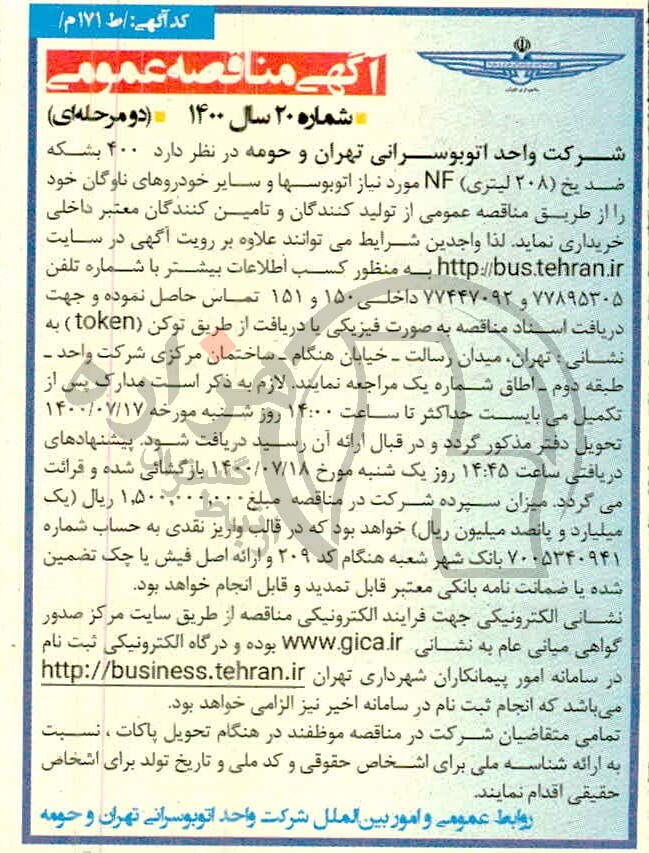 کد آگهی: /ط ۱۷۱ م/
آگهی مناقصه عمومی
شماره ۲۰ سال ۱۴۰۰ (دو مرحله‌ای)
شرکت واحد اتوبوسرانی تهران و حومه در نظر دارد ۴۰۰ بشکه
ضد یخ (۲۰۸ لیتری) NF مورد نیاز اتوبوسها و سایر خودروهای ناوگان خود
را از طریق مناقصه عمومی از تولید کنندگان و تامین کنندگان معتبر داخلی
خریداری نماید. لذا واجدین شرایط می توانند علاوه بر رویت آگهی در سایت
http://bus.tehran.ir به منظور کسب اطلاعات بیشتر با شماره تلفن
۷۷۸۹۵۳۰۵ و ۷۷۴۴۷۰۹۲ داخلی ۱۵۰ و ۱۵۱ تماس حاصل نموده و جهت
دریافت اسناد مناقصه به صورت فیزیکی یا دریافت از طریق توکن (token) به
نشانی : تهران، میدان رسالت ـ خیابان هنگام ـ ساختمان مرکزی شرکت واحد ـ
طبقه دوم ـ اطاق شماره یک مراجعه نمایند. لازم به ذکر است مدارک پس از
تکمیل می بایست حداکثر تا ساعت ۱۴:۰۰ روز شنبه مورخه ۱۴۰۰/۰۷/۱۷
تحویل دفتر مذکور گردد و در قبال ارائه آن رسید دریافت شود. پیشنهادهای
دریافتی ساعت ۱۴:۴۵ روز یک شنبه مورخ ۱۴۰۰/۰۷/۱۸ بازگشائی شده و قرائت
می گردد. میزان سپرده شرکت در مناقصه مبلغ ۱,۵۰۰,۰۰۰,۰۰۰ ریال (یک
میلیارد و پانصد میلیون ریال) خواهد بود که در قالب واریز نقدی به حساب شماره
۷۰۰۵۳۴۰۹۴۱ بانک شهر شعبه هنگام کد ۲۰۹ و ارائه اصل فیش یا چک تضمین
شده یا ضمانت نامه بانکی معتبر قابل تمدید و قابل انجام خواهد بود.
نشانی الکترونیکی جهت فرایند الکترونیکی مناقصه از طریق سایت مرکز صدور
گواهی میانی عام به نشانی www.gica.ir بوده و درگاه الکترونیکی ثبت نام
در سامانه امور پیمانکاران شهرداری تهران http://business.tehran.ir
می‌باشد که انجام ثبت نام در سامانه اخیر نیز الزامی خواهد بود.
تمامی متقاضیان شرکت در مناقصه موظفند در هنگام تحویل پاکات ، نسبت
به ارائه شناسه ملی برای اشخاص حقوقی و کد ملی و تاریخ تولد برای اشخاص
حقیقی اقدام نمایند.
روابط عمومی و امور بین‌الملل شرکت واحد اتوبوسرانی تهران و حومه